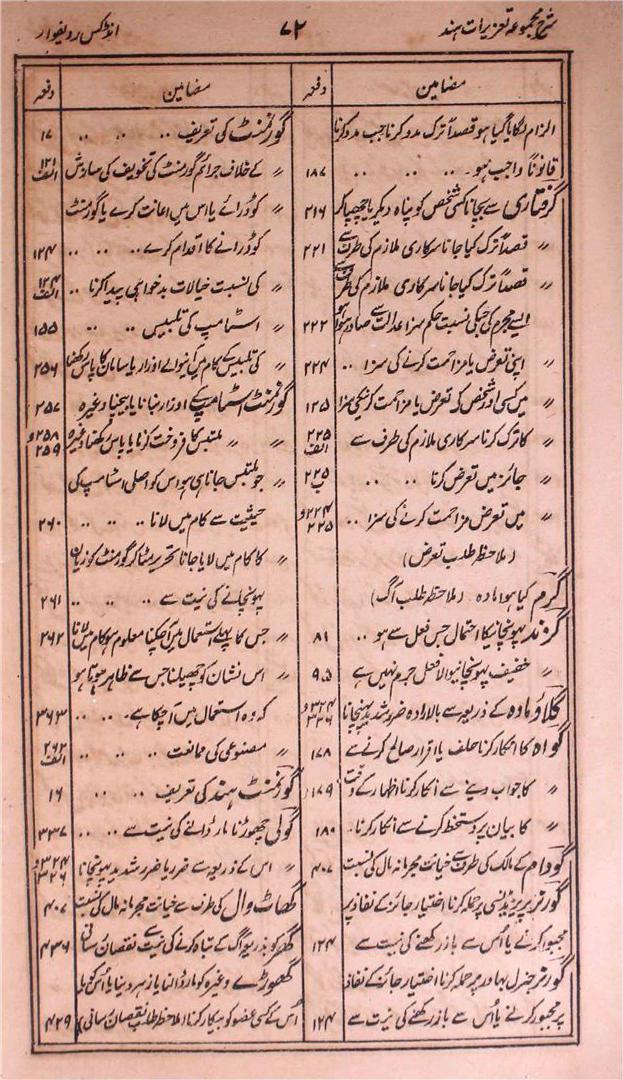 شرح مجموعہ تعزیرات ہند ۷۲ انڈکس ردیفوار
مضامین دفعہ
الزام لگایا گیا ہو قصداً ترک مدد کرنا جب مدد کرنا
قانوناً واجب ہو .. .. .. ۱۸۷
گرفتاری سے بچانا کسی شخص کو پناہ دیکر یا چھپا کر ۲۱۶
〃 قصداً ترک کیا جانا سرکاری ملازم کی طرف سے ۲۲۱
〃 قصداً ترک کیا جانا سرکاری ملازم کی طرف سے
ایسے مجرم کی جسکی نسبت حکم سزا عدالت سے صادر ہوا ہو ۲۲۲
〃 اپنی تعرض یا مزاحمت کرنے کی سزا .. ۲۲۴
〃 میں کسی اور شخص کی تعرض یا مزاحمت کرنیکی سزا ۱۲۵
〃 کا ترک کرنا سرکاری ملازم کی طرف سے ۲۲۵ الف
〃 جائز میں تعرض کرنا .. .. ۲۲۵ ب
〃 میں تعرض مزاحمت کرنے کی سزا .. ۲۲۴ و ۲۲۵
(ملاحظہ طلب تعرض)
گرم کیا ہوا مادہ (ملاحظہ طلب آگ)
گزند پہونچانیکا احتمال جس فعل سے ہو .. ۸۱
〃 خفیف پہونچانیوالا فعل جرم نہیں ہے ۹۵
گلاؤ مادہ کے ذریعہ سے بالارادہ ضرر شدید پہنچانا ۳۲۴ و ۳۲۶
گواہ کا انکار کرنا حلف یا اقرار صالح کرنے سے ۱۷۸
〃 کا جواب دینے سے انکار کرنا اظہار کے وقت ۱۷۹
〃 کا بیان پر دستخط کرنے سے انکار کرنا .. ۱۸۰
گودام کے مالک کی طرف سے خیانت مجرمانہ مال کی نسبت ۴۰۷
گورنر پریزیڈنسی پر حملہ کرنا اختیار جائز کے نفاذ پر
مجبور کرنے یا اُس سے باز رکھنے کی نیت سے ۱۲۴
گورنر جنرل بہادر پر حملہ کرنا اختیار جائز کے نفاذ
پر مجبور کرنے یا اُس سے باز رکھنے کی نیت سے ۱۲۴
مضامین دفعہ
گورنمنٹ کی تعریف .. .. .. ۱۷
〃 کے خلاف جرائم گورنمنٹ کی تخویف کی سازش ۱۲۱ الف
〃 کو ڈرائے یا اس میں اعانت کرے یا گورنمنٹ
کو ڈرانے کا اقدام کرے .. .. .. ۱۲۴
〃 کی نسبت خیالات بدخواہی پیدا کرنا .. ۱۲۴ الف
〃 اسٹامپ کی تلبیس .. .. ۱۵۵
〃 کی تلبیس کے کام میں آنیوالے اوزار یا سامان کا پاس رکھنا ۲۵۶
گورنمنٹ اسٹامپ کے اوزار بنانا یا بیچنا وغیرہ ۲۵۷
〃 〃 ملتبس کا فروخت کرنا یا پاس رکھنا وغیرہ ۲۵۸ و ۲۵۹
〃 جو ملتبس جانا ہی ہو اس کو اصلی اسٹامپ کی
حیثیت سے کام میں لانا .. .. .. ۲۶۰
〃 کا کام میں لایا جانا تحریر مٹا کر گورنمنٹ کو زیان
پہونچانے کی نیت سے .. .. .. ۲۶۱
〃 جس کا پہلے استعمال میں آچکنا معلوم ہو کام میں لانا ۲۶۲
〃 اس نشان کو چھیلنا جس سے ظاہر ہوتا ہو
کہ وہ استعمال میں آچکا ہے .. .. .. ۳۶۳
〃 مصنوعی کی ممانعت .. .. ۲۶۳ الف
گورنمنٹ ہند کی تعریف .. .. ۱۶
گولی چھوڑنا مار ڈالنے کی نیت سے .. .. ۳۳۷
〃 اس کے ذریعہ سے ضرر یا ضرر شدید پہونچانا ۳۲۴ و ۳۲۶
گھاٹ وال کی طرف سے خیانت مجرمانہ مال کی نسبت ۴۰۷
گھر کو بذریعہ آگ کے تباہ کرنے کی نیت سے نقصان رسانی ۴۳۶
گھوڑے وغیرہ کو مار ڈالنا یا زہر دینا یا
اُس کے کسی عضو کو بیکار کرنا (ملاحظہ طلب نقصان رسانی) ۴۲۹